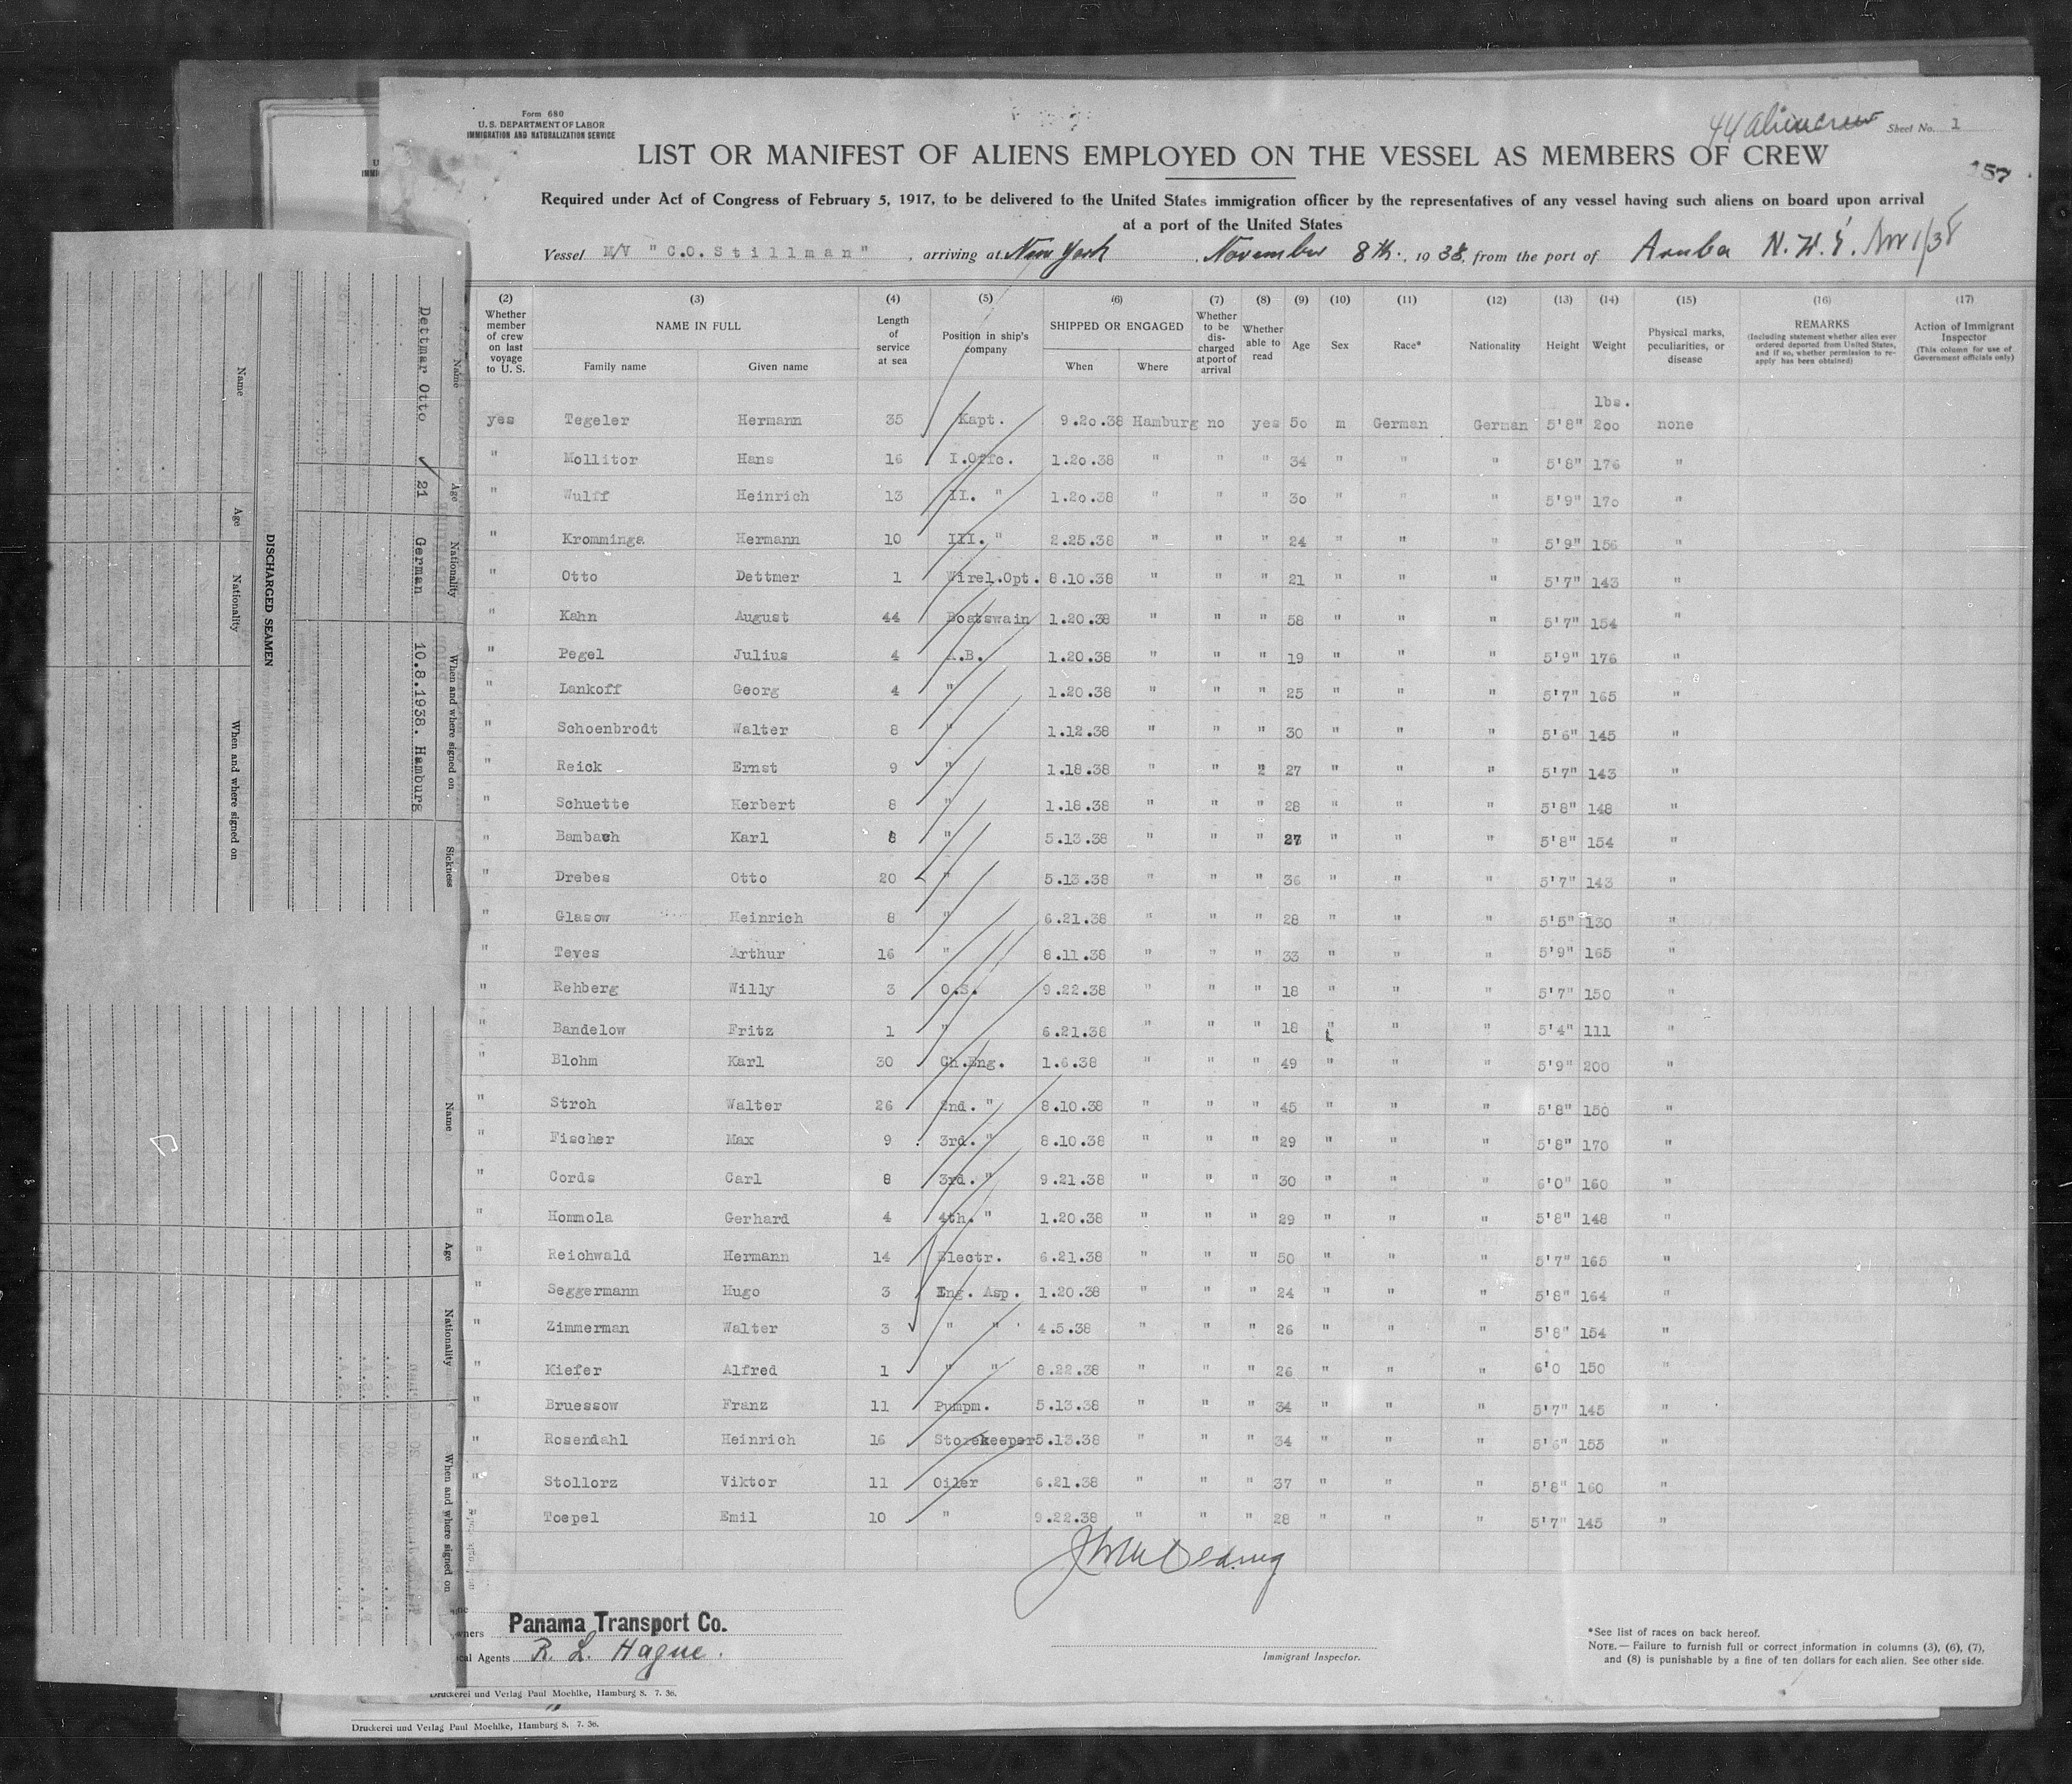 Form 680
U. S. DEPARTMENT OF LABOR
IMMIGRATION AND NATURALIZATION SERVICE
44 alien crew Sheet No. 1
LIST OR MANIFEST OF ALIENS EMPLOYED ON THE VESSEL AS MEMBERS OF CREW
157
Required under Act of Congress of February 5, 1917, to be delivered to the United States immigration officer by the representatives of any vessel having such aliens on board upon arrival
at a port of the United States
Vessel M/V "C.O. Stillman", arriving at New York, November 8th., 1938, from the port of Aruba N.W.I. Nov 1/38
(2) Whether member of crew on last voyage to U. S.
(3) NAME IN FULL Family name Given name
(4) Length of service at sea
(5) Position in ship's company
(6) SHIPPED OR ENGAGED When Where
(7) Whether to be discharged at port of arrival
(8) Whether able to read
(9) Age
(10) Sex
(11) Race*
(12) Nationality
(13) Height
(14) Weight
(15) Physical marks, peculiarities, or disease
(16) REMARKS (Including statement whether alien ever ordered deported from United States, and if so, whether permission to re-apply has been obtained)
(17) Action of Immigrant Inspector (This column for use of Government officials only)
lbs.
yes Tegeler Hermann 35 Kapt. 9.20.38 Hamburg no yes 50 m German German 5'8" 200 none
" Mollitor Hans 16 I.Offc. 1.20.38 " " " 34 " " " 5'8" 176 "
" Wulff Heinrich 13 II. " 1.20.38 " " " 30 " " " 5'9" 170 "
" Kromminga Hermann 10 III. " 2.25.38 " " " 24 " " " 5'9" 156 "
" Otto Dettmer 1 Wirel.Opt. 8.10.38 " " " 21 " " " 5'7" 143 "
" Kahn August 44 Boatswain 1.20.38 " " " 58 " " " 5'7" 154 "
" Pegel Julius 4 A.B. 1.20.38 " " " 19 " " " 5'9" 176 "
" Lankoff Georg 4 " 1.20.38 " " " 25 " " " 5'7" 165 "
" Schoenbrodt Walter 8 " 1.12.38 " " " 30 " " " 5'6" 145 "
" Reick Ernst 9 " 1.18.38 " " " 27 " " " 5'7" 143 "
" Schuette Herbert 8 " 1.18.38 " " " 28 " " " 5'8" 148 "
" Bambach Karl 8 " 5.13.38 " " " 27 " " " 5'8" 154 "
" Drebes Otto 20 " 5.13.38 " " " 36 " " " 5'7" 143 "
" Glasow Heinrich 8 " 6.21.38 " " " 28 " " " 5'5" 130 "
" Teves Arthur 16 " 8.11.38 " " " 33 " " " 5'9" 165 "
" Rehberg Willy 3 O.S. 9.22.38 " " " 18 " " " 5'7" 150 "
" Bandelow Fritz 1 " 6.21.38 " " " 18 " " " 5'4" 111 "
" Blohm Karl 30 Ch.Eng. 1.6.38 " " " 49 " " " 5'9" 200 "
" Stroh Walter 26 2nd. " 8.10.38 " " " 45 " " " 5'8" 150 "
" Fischer Max 9 3rd. " 8.10.38 " " " 29 " " " 5'8" 170 "
" Cords Carl 8 3rd. " 9.21.38 " " " 30 " " " 6'0" 160 "
" Hommola Gerhard 4 4th. " 1.20.38 " " " 29 " " " 5'8" 148 "
" Reichwald Hermann 14 Electr. 6.21.38 " " " 50 " " " 5'7" 165 "
" Seggermann Hugo 3 Eng. Asp. 1.20.38 " " " 24 " " " 5'8" 164 "
" Zimmerman Walter 3 " " 4.5.38 " " " 26 " " " 5'8" 154 "
" Kiefer Alfred 1 " " 8.22.38 " " " 26 " " " 6'0 150 "
" Bruessow Franz 11 Pumpm. 5.13.38 " " " 34 " " " 5'7" 145 "
" Rosendahl Heinrich 16 Storekeeper 5.13.38 " " " 34 " " " 5'6" 155 "
" Stollorz Viktor 11 Oiler 6.21.38 " " " 37 " " " 5'8" 160 "
Toepel Emil 10 " 9.22.38 " " " 28 " " " 5'7" 145 "
Owners Panama Transport Co.
Local Agents R. L. Hague.
Immigrant Inspector.
*See list of races on back hereof.
NOTE.—Failure to furnish full or correct information in columns (3), (6), (7),
and (8) is punishable by a fine of ten dollars for each alien. See other side.
Druckerei und Verlag Paul Moehlke, Hamburg 8. 7. 36.
Druckerei und Verlag Paul Moehlke, Hamburg 8. 7. 36.
Name Age Nationality When and where signed on Sickness
Dettmar Otto 21 German 10.8.1938. Hamburg
DISCHARGED SEAMEN
Name Age Nationality When and where signed on
Name Age Nationality When and where signed on